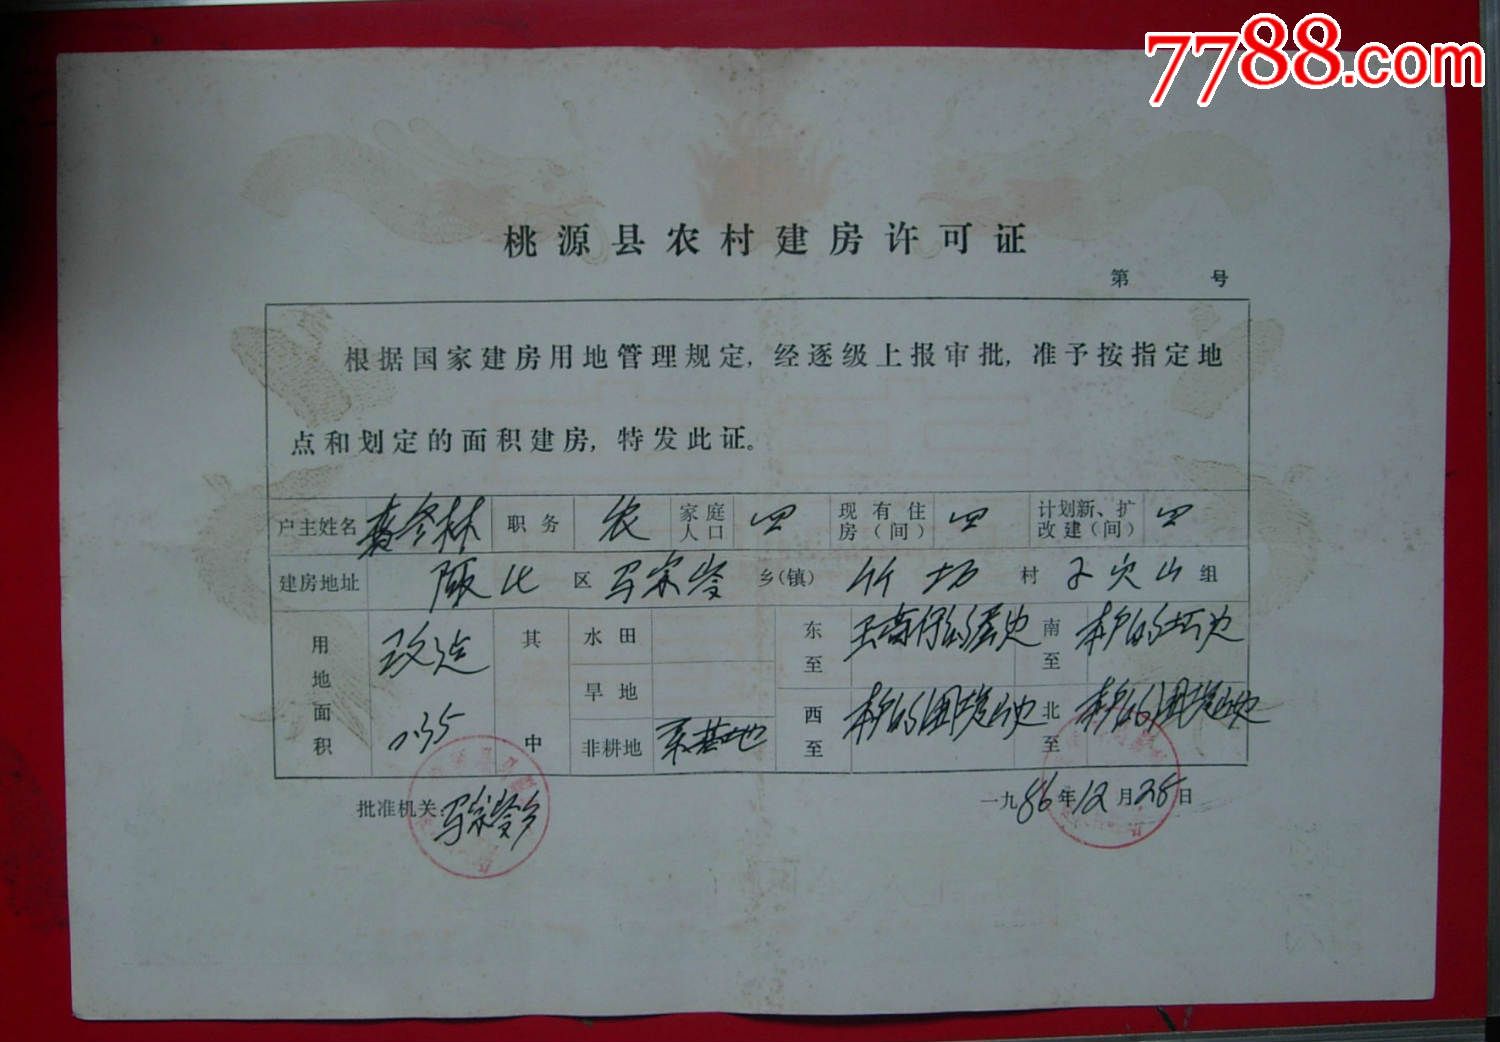 7788.com
桃源县农村建房许可证
第 号
根据国家建房用地管理规定，经逐级上报审批，准予按指定地
点和划定的面积建房，特发此证。
户主姓名 冬林 职务 农 家庭人口 四 现有住房（间） 四 计划新、扩改建（间） 四
建房地址 陬北 区 马宗岭 乡（镇） 竹坊 村 山 组
用地面积 改造 0.35 其中 水田 东至 南至 本户的
旱地
非耕地 系基地 西至 本户的围 北至 本户的围
批准机关： 马宗岭乡 一九86年12月28日